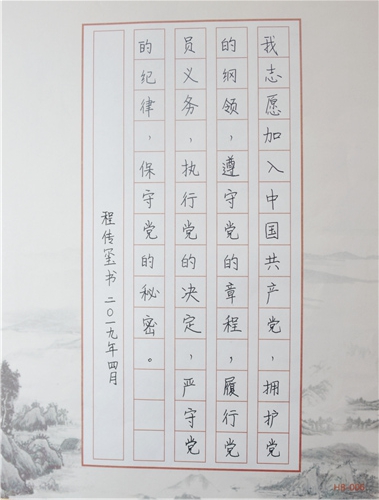 我志愿加入中国共产党，拥护党
的纲领，遵守党的章程，履行党
员义务，执行党的决定，严守党
的纪律，保守党的秘密。
程传玺书 二〇一九年四月